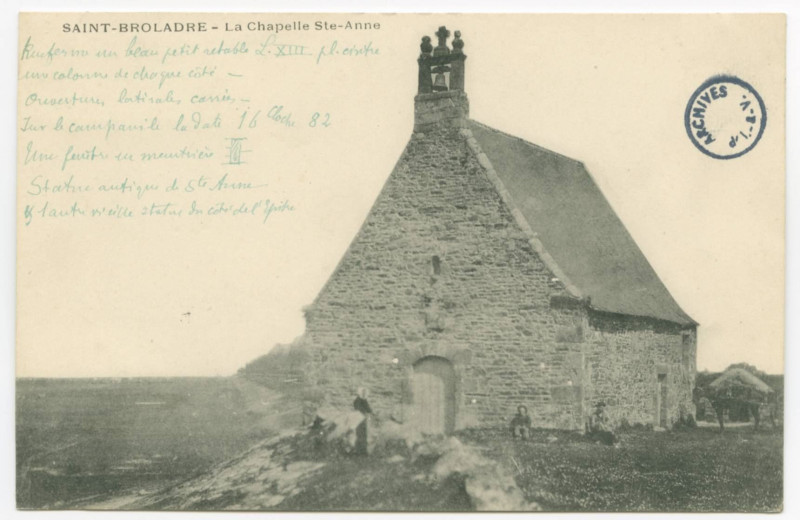 SAINT-BROLADRE - La Chapelle Ste-Anne
Renferme un beau petit retable L. XIII pl. cintre
une colonne de chaque côté -
Ouvertures latérales carrées -
Sur le campanile la date 16 Cloche 82
Une fenêtre en meurtrière
Statue antique de Ste Anne
& 1 autre vieille statue du côté de l'Epitre
ARCHIVES
I.-&-V.